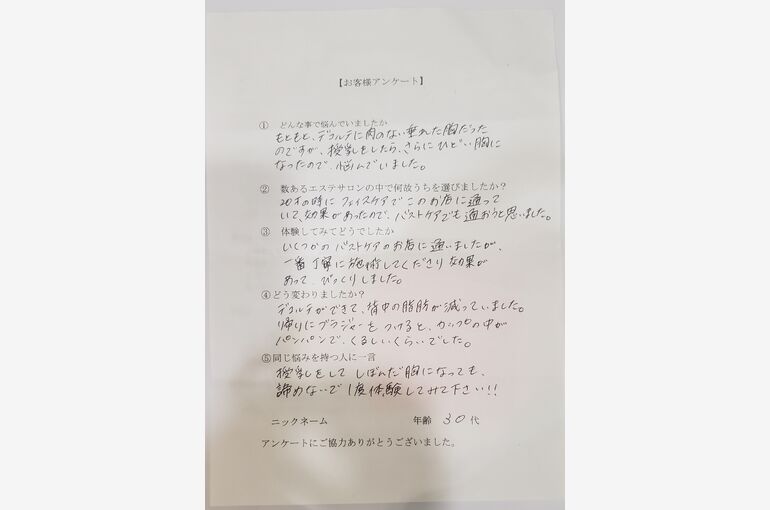 【お客様アンケート】
① どんな事で悩んでいましたか
もともと、デコルテに肉のない垂れた胸だった
のですが、授乳をしたら、さらにひどい胸に
なったので、悩んでいました。
② 数あるエステサロンの中で何故うちを選びましたか?
20才の時にフェイスケアでこのお店に通って
いて、効果があったので、バストケアでも通おうと思いました。
③ 体験してみてどうでしたか
いくつかのバストケアのお店に通いましたが、
一番丁寧に施術してくださり効果が
あって、びっくりしました。
④どう変わりましたか?
デコルテができて、背中の脂肪が減っていました。
帰りにブラジャーをつけると、カップの中が
パンパンで、くるしいくらいでした。
⑤同じ悩みを持つ人に一言
授乳をして しぼんだ胸になっても、
諦めないで1度体験してみて下さい!!
ニックネーム 年齢 30代
アンケートにご協力ありがとうございました。